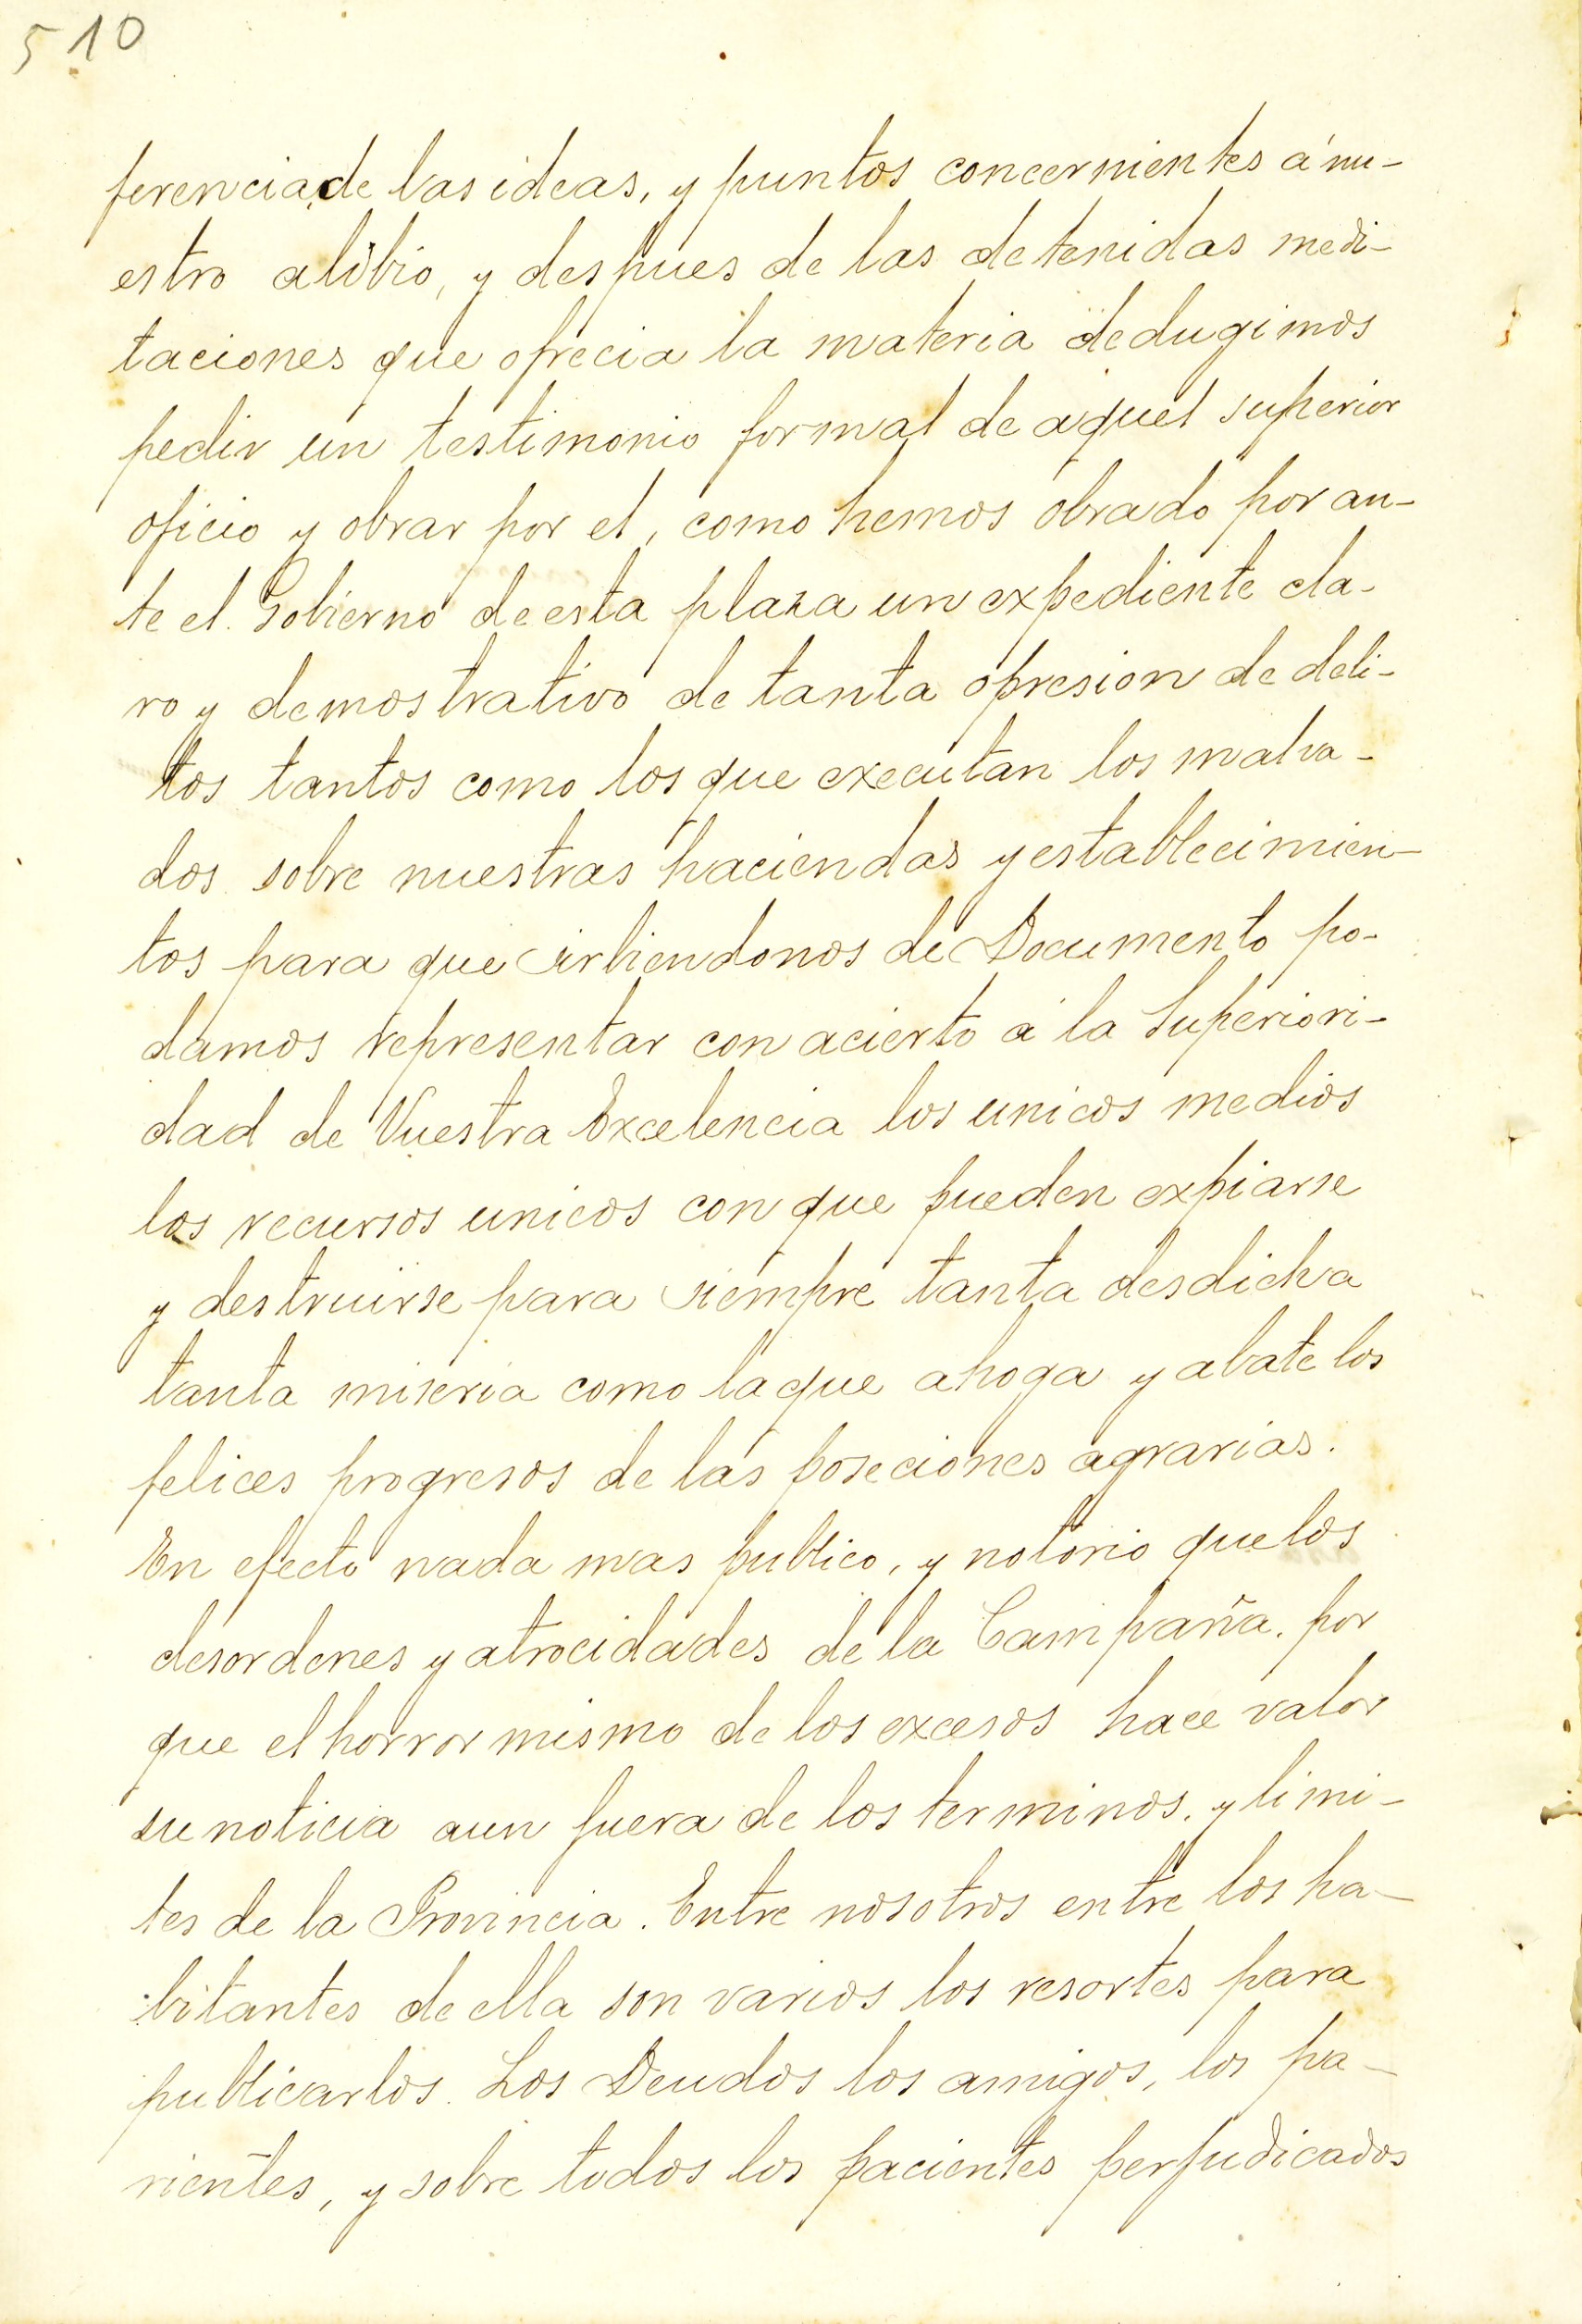 510
ferencia de las ideas, y puntos concernientes á nu-
estro alibio, y despues de las detenidas medi-
taciones que ofrecia la materia dedugimos
pedir un testimonio formal de aquel superior
oficio y obrar por el, como hemos obrado por an-
te el Gobierno de esta plaza un expediente cla-
ro y demostrativo de tanta opresion de deli-
tos tantos como los que executan los malva-
dos sobre nuestras haciendas y establecimien-
tos para que sirbiendonos de Documento po-
damos representar con acierto á la Superiori-
dad de Vuestra Excelencia los unicos medios
los recursos unicos con que pueden expiarse
y destruirse para siempre tanta desdicha
tanta miseria como la que ahoga y abate los
felices progresos de las poseciones agrarias.
En efecto nada mas publico, y notorio que los
desordenes y atrocidades de la Campaña. por
que el horror mismo de los excesos hace valor
su noticia aun fuera de los terminos. y limi-
tes de la Provincia. Entre nosotros entre los ha-
bitantes de ella son varios los resortes para
publicarlos. Los Deudos los amigos, los pa-
rientes, y sobre todos los pacientes perjudicados